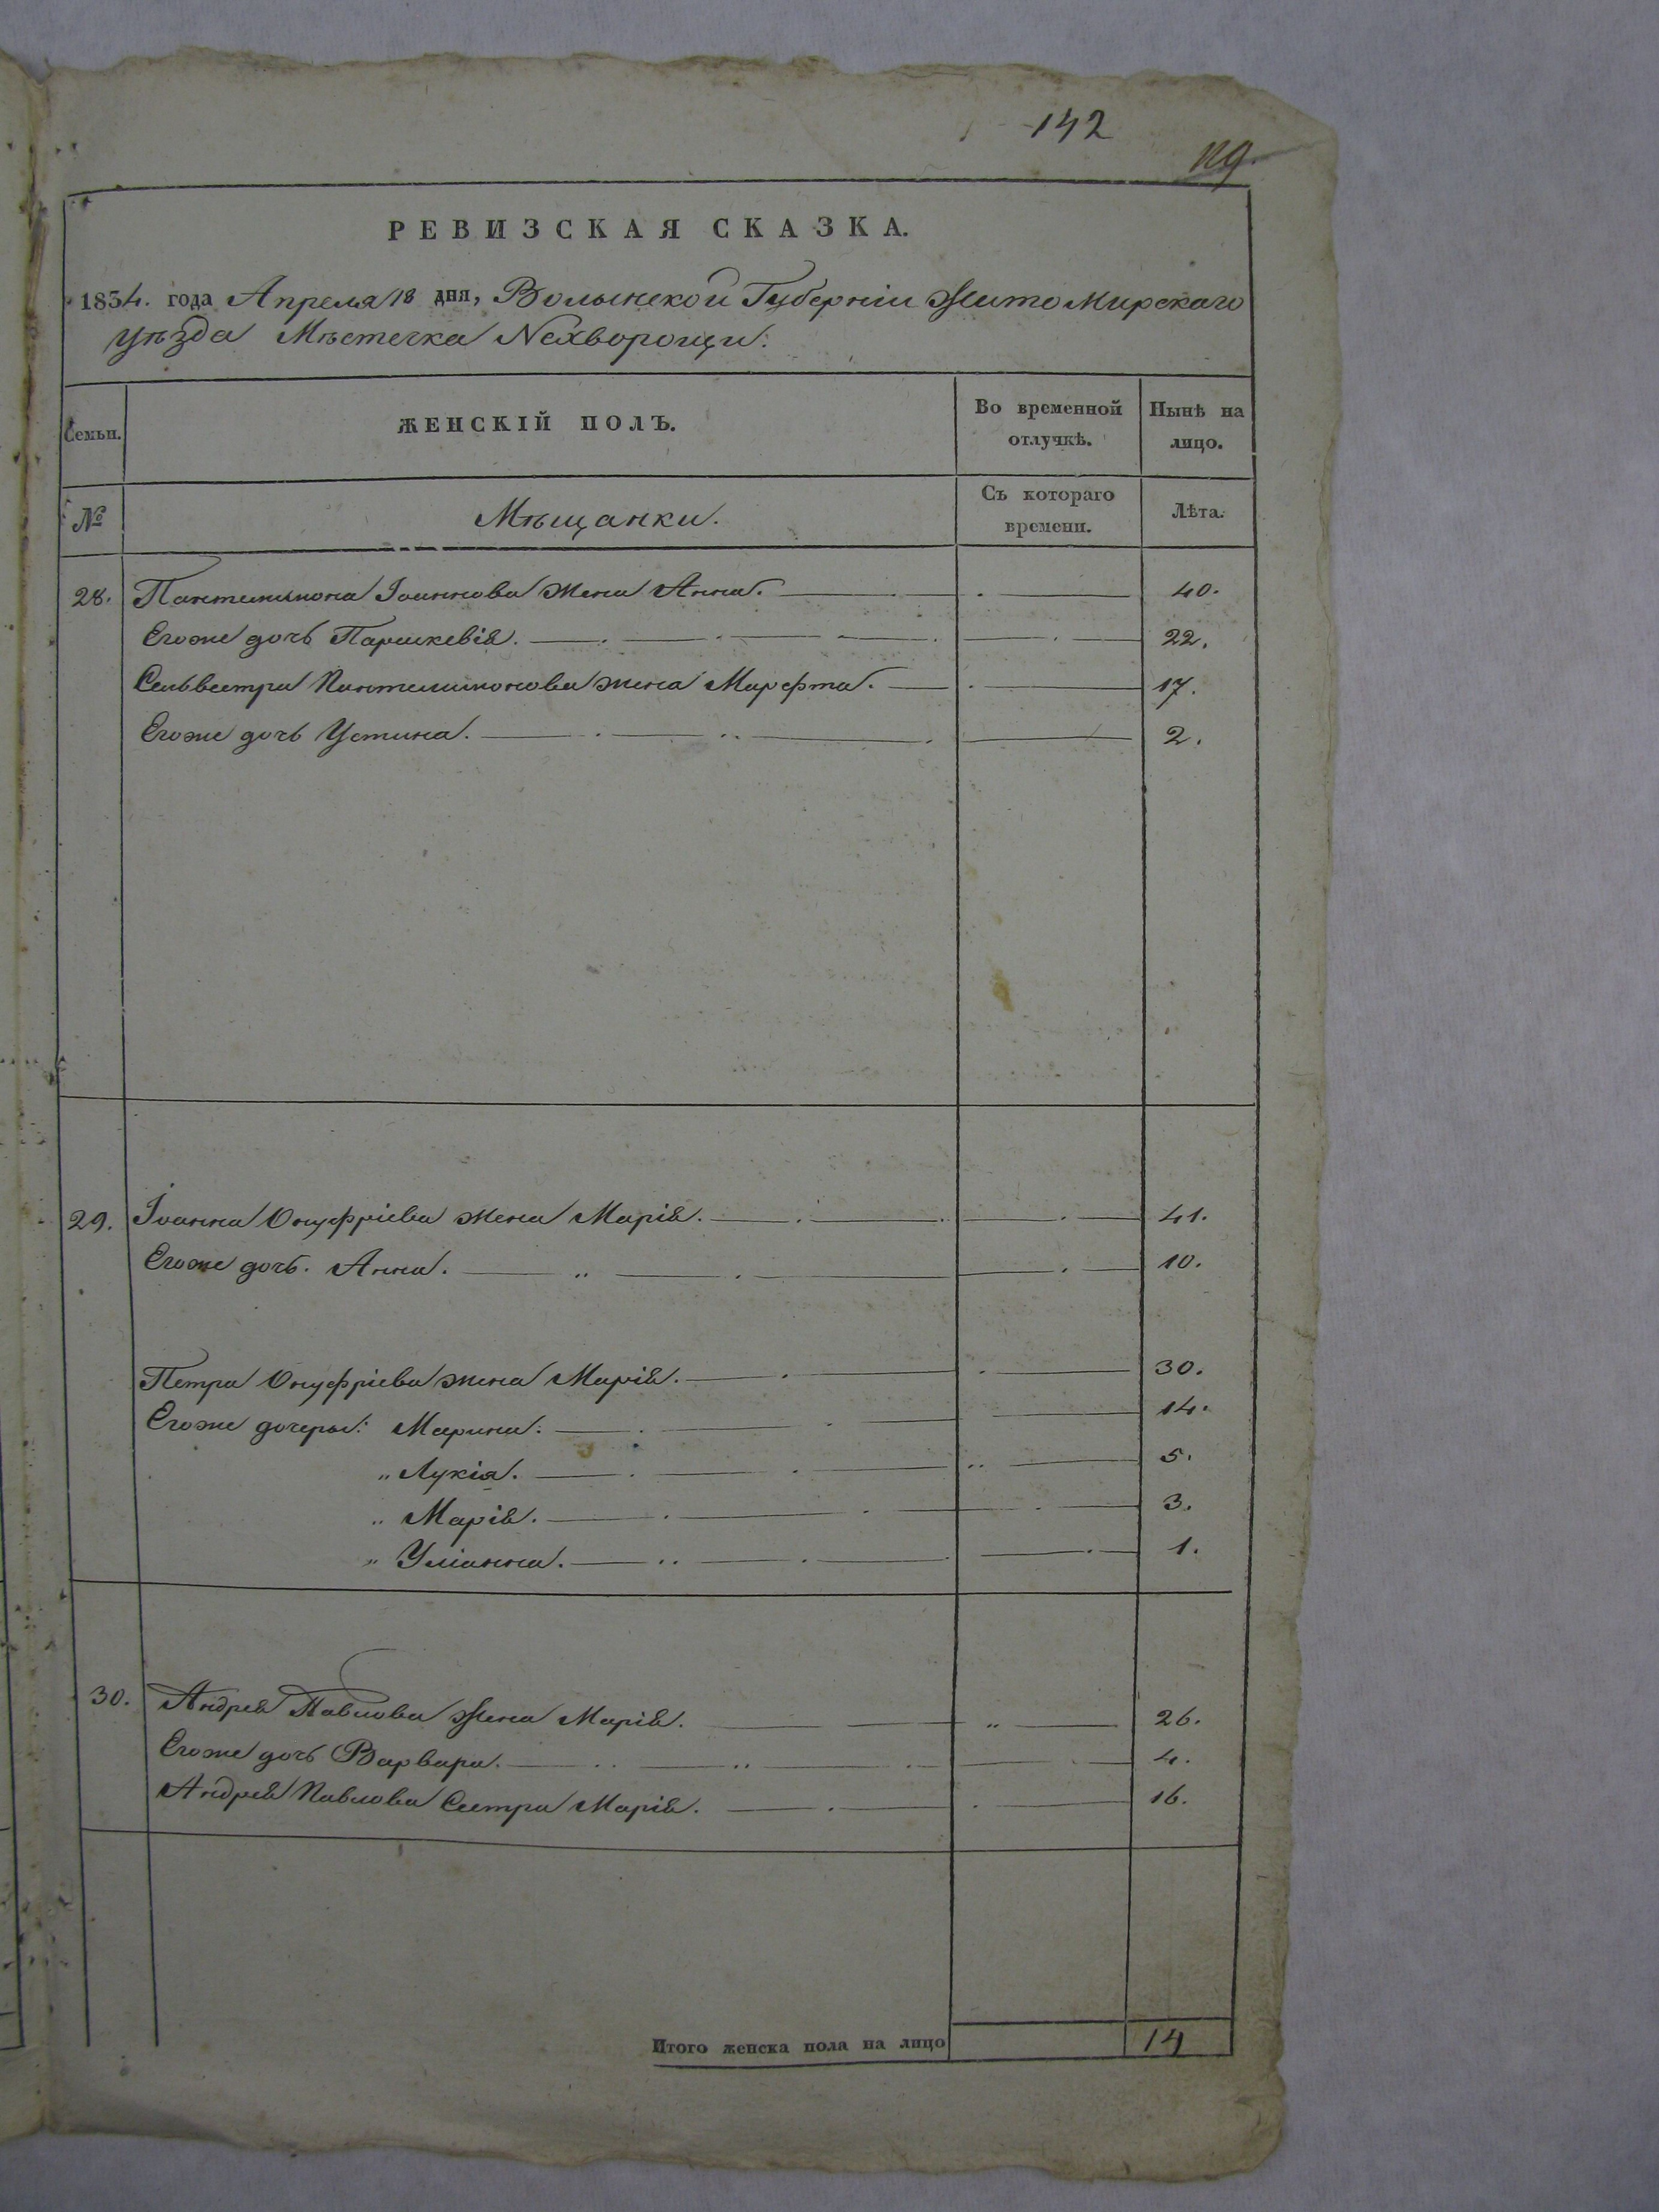 142
119.
РЕВИЗСКАЯ СКАЗКА.
1834. года Апреля 18 дня, Волынской Губерніи Житомирскаго
уѣзда Мѣстечка Нехворощи:
Семьи. ЖЕНСКІЙ ПОЛЪ. Во временной отлучкѣ. Нынѣ на лицо.
№ Мѣщанки. Съ котораго времени. Лѣта.
28. Пантелимона Іоаннова жена Анна. 40.
Егоже дочь Параскевія. 22.
Сельвестра Пантелимонова жена Марфта. 17.
Егоже дочь Устина. 2.
29. Іоанна Онуфріева жена Марія. 41.
Егоже дочь. Анна. 10.
Петра Онуфріева жена Марія. 30.
Егоже дочеры: Марина: 14.
„ Лукія. 5.
„ Марія. 3.
„ Уліанна. 1.
30. Андрея Павлова жена Марія. 26.
Егоже дочь Варвара. 4.
Андрея Павлова Сестра Марія. 16.
Итого женска пола на лицо 14